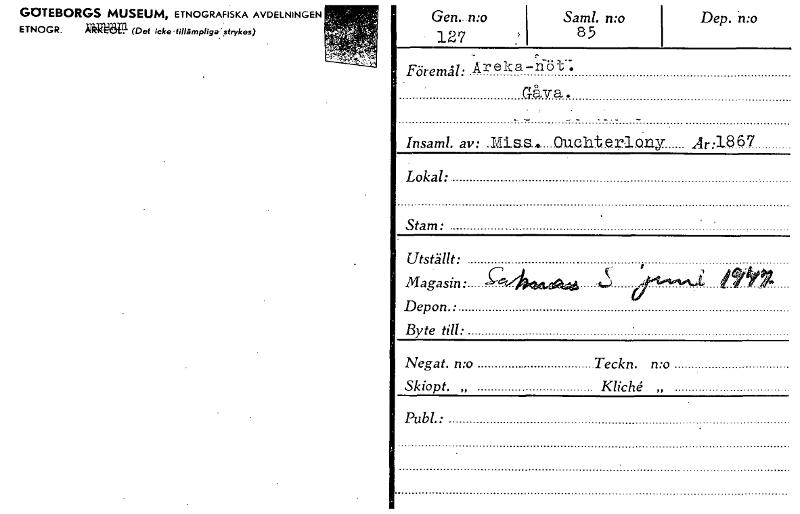 GÖTEBORGS MUSEUM, ETNOGRAFISKA AVDELNINGEN
ETNOGR. ARKEOL. (Det icke tillämpliga strykes)
Gen. n:o Saml. n:o Dep. n:o
127 85
Föremål: Areka-nöt.
Gåva.
Insaml. av: Miss. Ouchterlony År: 1867
Lokal:
Stam:
Utställt:
Magasin: Saknas 5 juni 1947
Depon.:
Byte till:
Negat. n:o Teckn. n:o
Skiopt. „ Kliché „
Publ.: